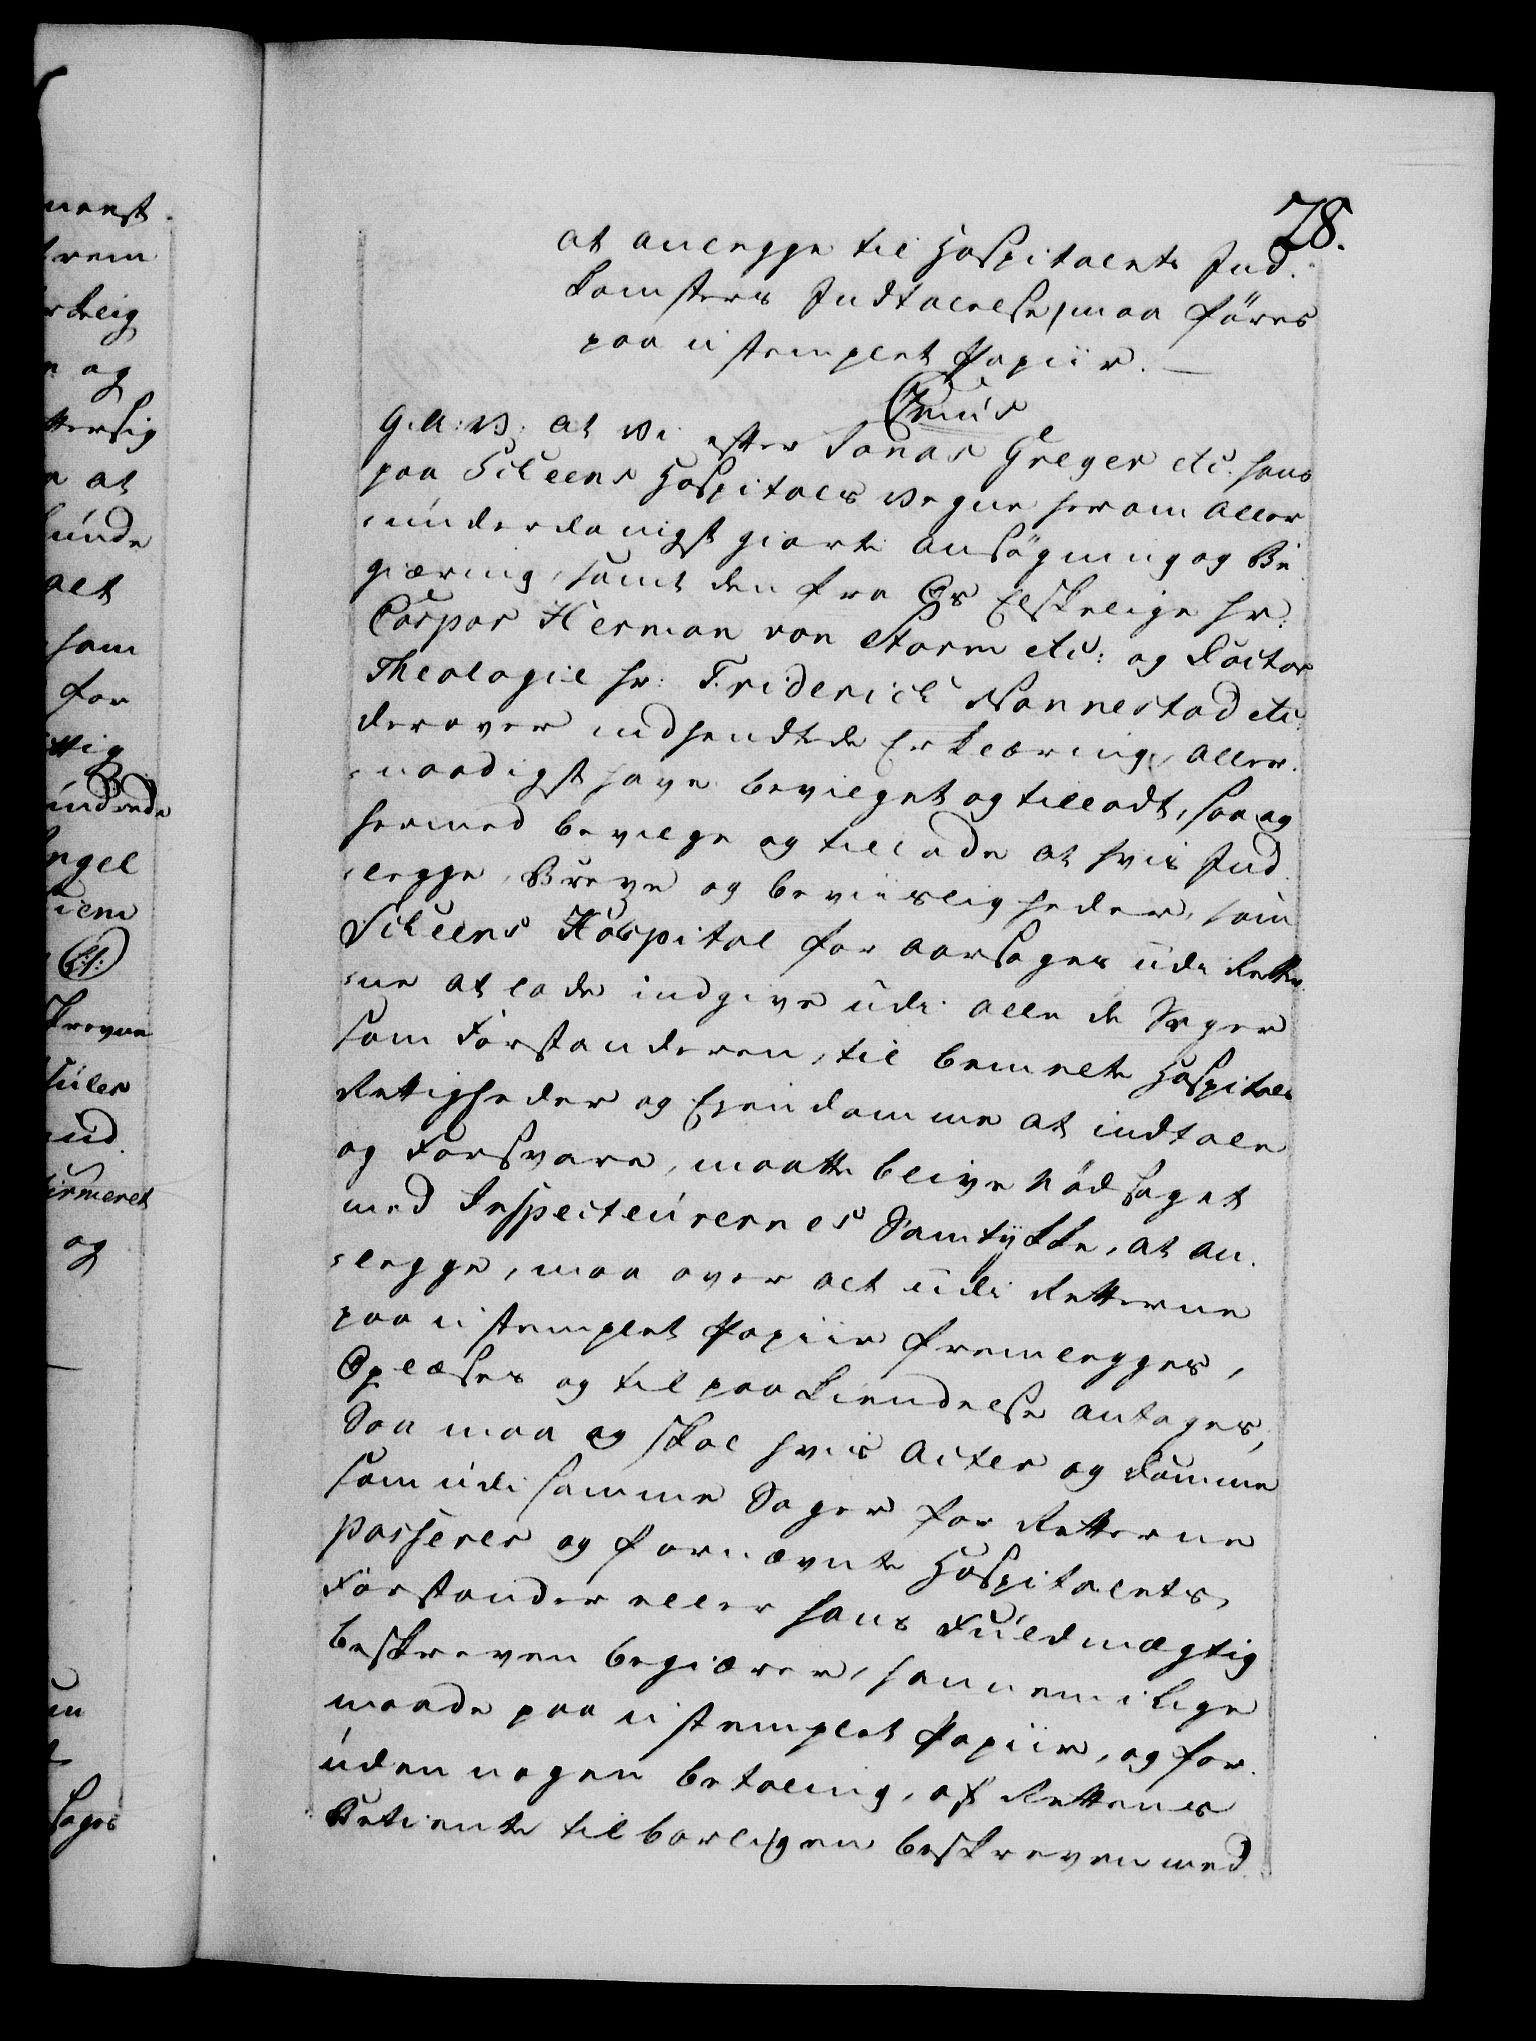 28.
at anlegge til Hospitalets Ind-
komsters Indtalelse, maa föres
paa ustemplet Papiir. —
Cmus
G. A: V: at Vi efter Jonas Greger etc. hans
paa Scheens Hospitals vegne herom aller
underdanigst giorte ansøgning og Be-
giæring, samt den fra Os Elskelige Hr.
Caspar Herman von Storm etc: og Doctor
Theologiæ Hr: Friderich Nannestad etc:
derover indsendte Erklæring, aller-
naadigst have bevilget og tilladt, saa og
hermed bevilge og tillade at hvis Ind-
legge, Breve og beviisligheder, som
Scheens Hospital foraarsages udi Rette-
ne at lade indgive udi alle de Sager
som Forstanderen, til bemelte Hospitals
Rettigheder og Eiendomme at indtale
og Forsvare, maatte blive nödsaget
med Inspecteurernes Samtykke, at an-
legge, maa over alt udi Retterne
paa ustemplet Papiir fremlegges,
Oplæses og til paakiendelse antages,
Saa maa og skal hvis Acter og Domme
som udi samme Sager for Retterne
passerer og fornævnte Hospitalets
Forstander eller hans Fuldmægtig
beskreven begiærer, hannem i lige
maade paa ustemplet Papiir, og for-
uden nogen betaling, af Rettens
Betiente tilbørligen beskreven med